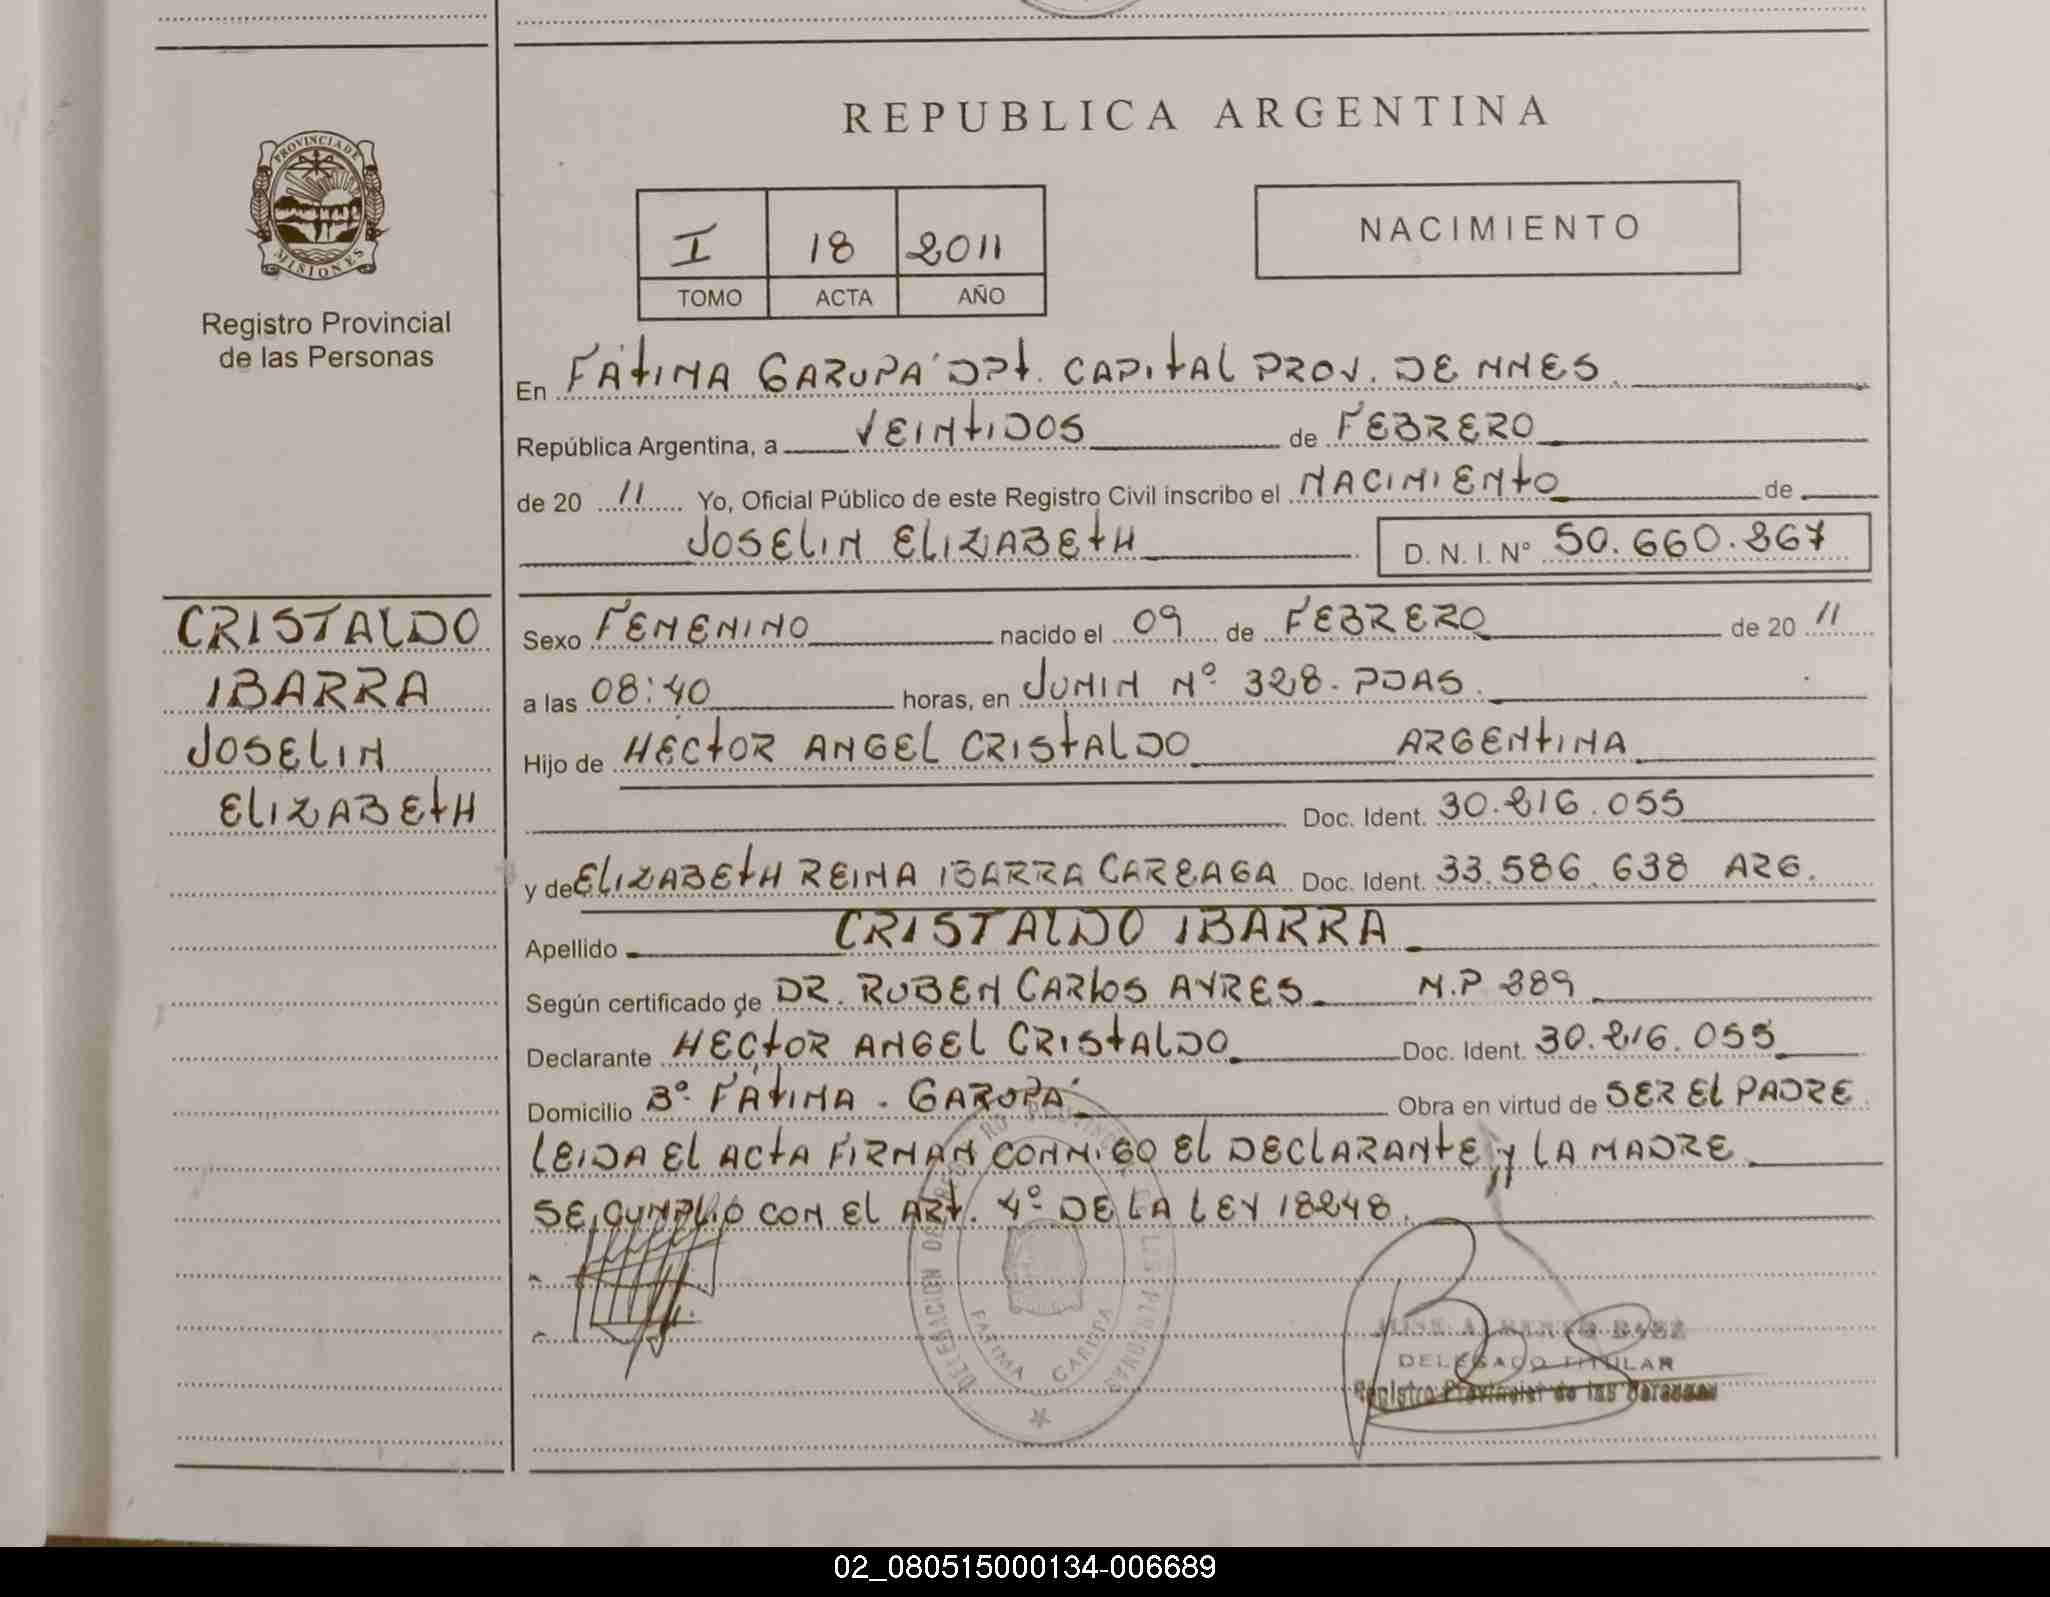 PROVINCIA DE
MISIONES
Registro Provincial
de las Personas
CRISTALDO
IBARRA
JOSELIN
ELIZABETH
REPUBLICA ARGENTINA
I 18 2011
TOMO ACTA AÑO
NACIMIENTO
En FÁTIMA GARUPA' DPT. CAPITAL PROV. DE MNES
República Argentina, a VEINTIDOS de FEBRERO
de 20 11 Yo, Oficial Público de este Registro Civil inscribo el NACIMIENTO de
JOSELIN ELIZABETH D. N. I. N° 50.660.867
Sexo FEMENINO nacido el 09 de FEBRERO de 20 11
a las 08:40 horas, en JUNIN Nº 328. PDAS.
Hijo de HECTOR ANGEL CRISTALDO ARGENTINA
Doc. Ident. 30.816.055
y de ELIZABETH REINA IBARRA CAREAGA Doc. Ident. 33.586.638 ARG.
Apellido CRISTALDO IBARRA
Según certificado de DR. RUBEN CARLOS AYRES M.P 389
Declarante HECTOR ANGEL CRISTALDO Doc. Ident. 30.816.055
Domicilio Bº FÁTIMA. GARUPA' Obra en virtud de SER EL PADRE
LEIDA EL ACTA FIRMAN CONMIGO EL DECLARANTE, y LA MADRE
SE CUMPLIO CON EL ART. 4º DE LA LEY 18248.
FATIMA GARUPA
DELEGADO TITULAR
Registro Provincial de las Personas
02_080515000134-006689